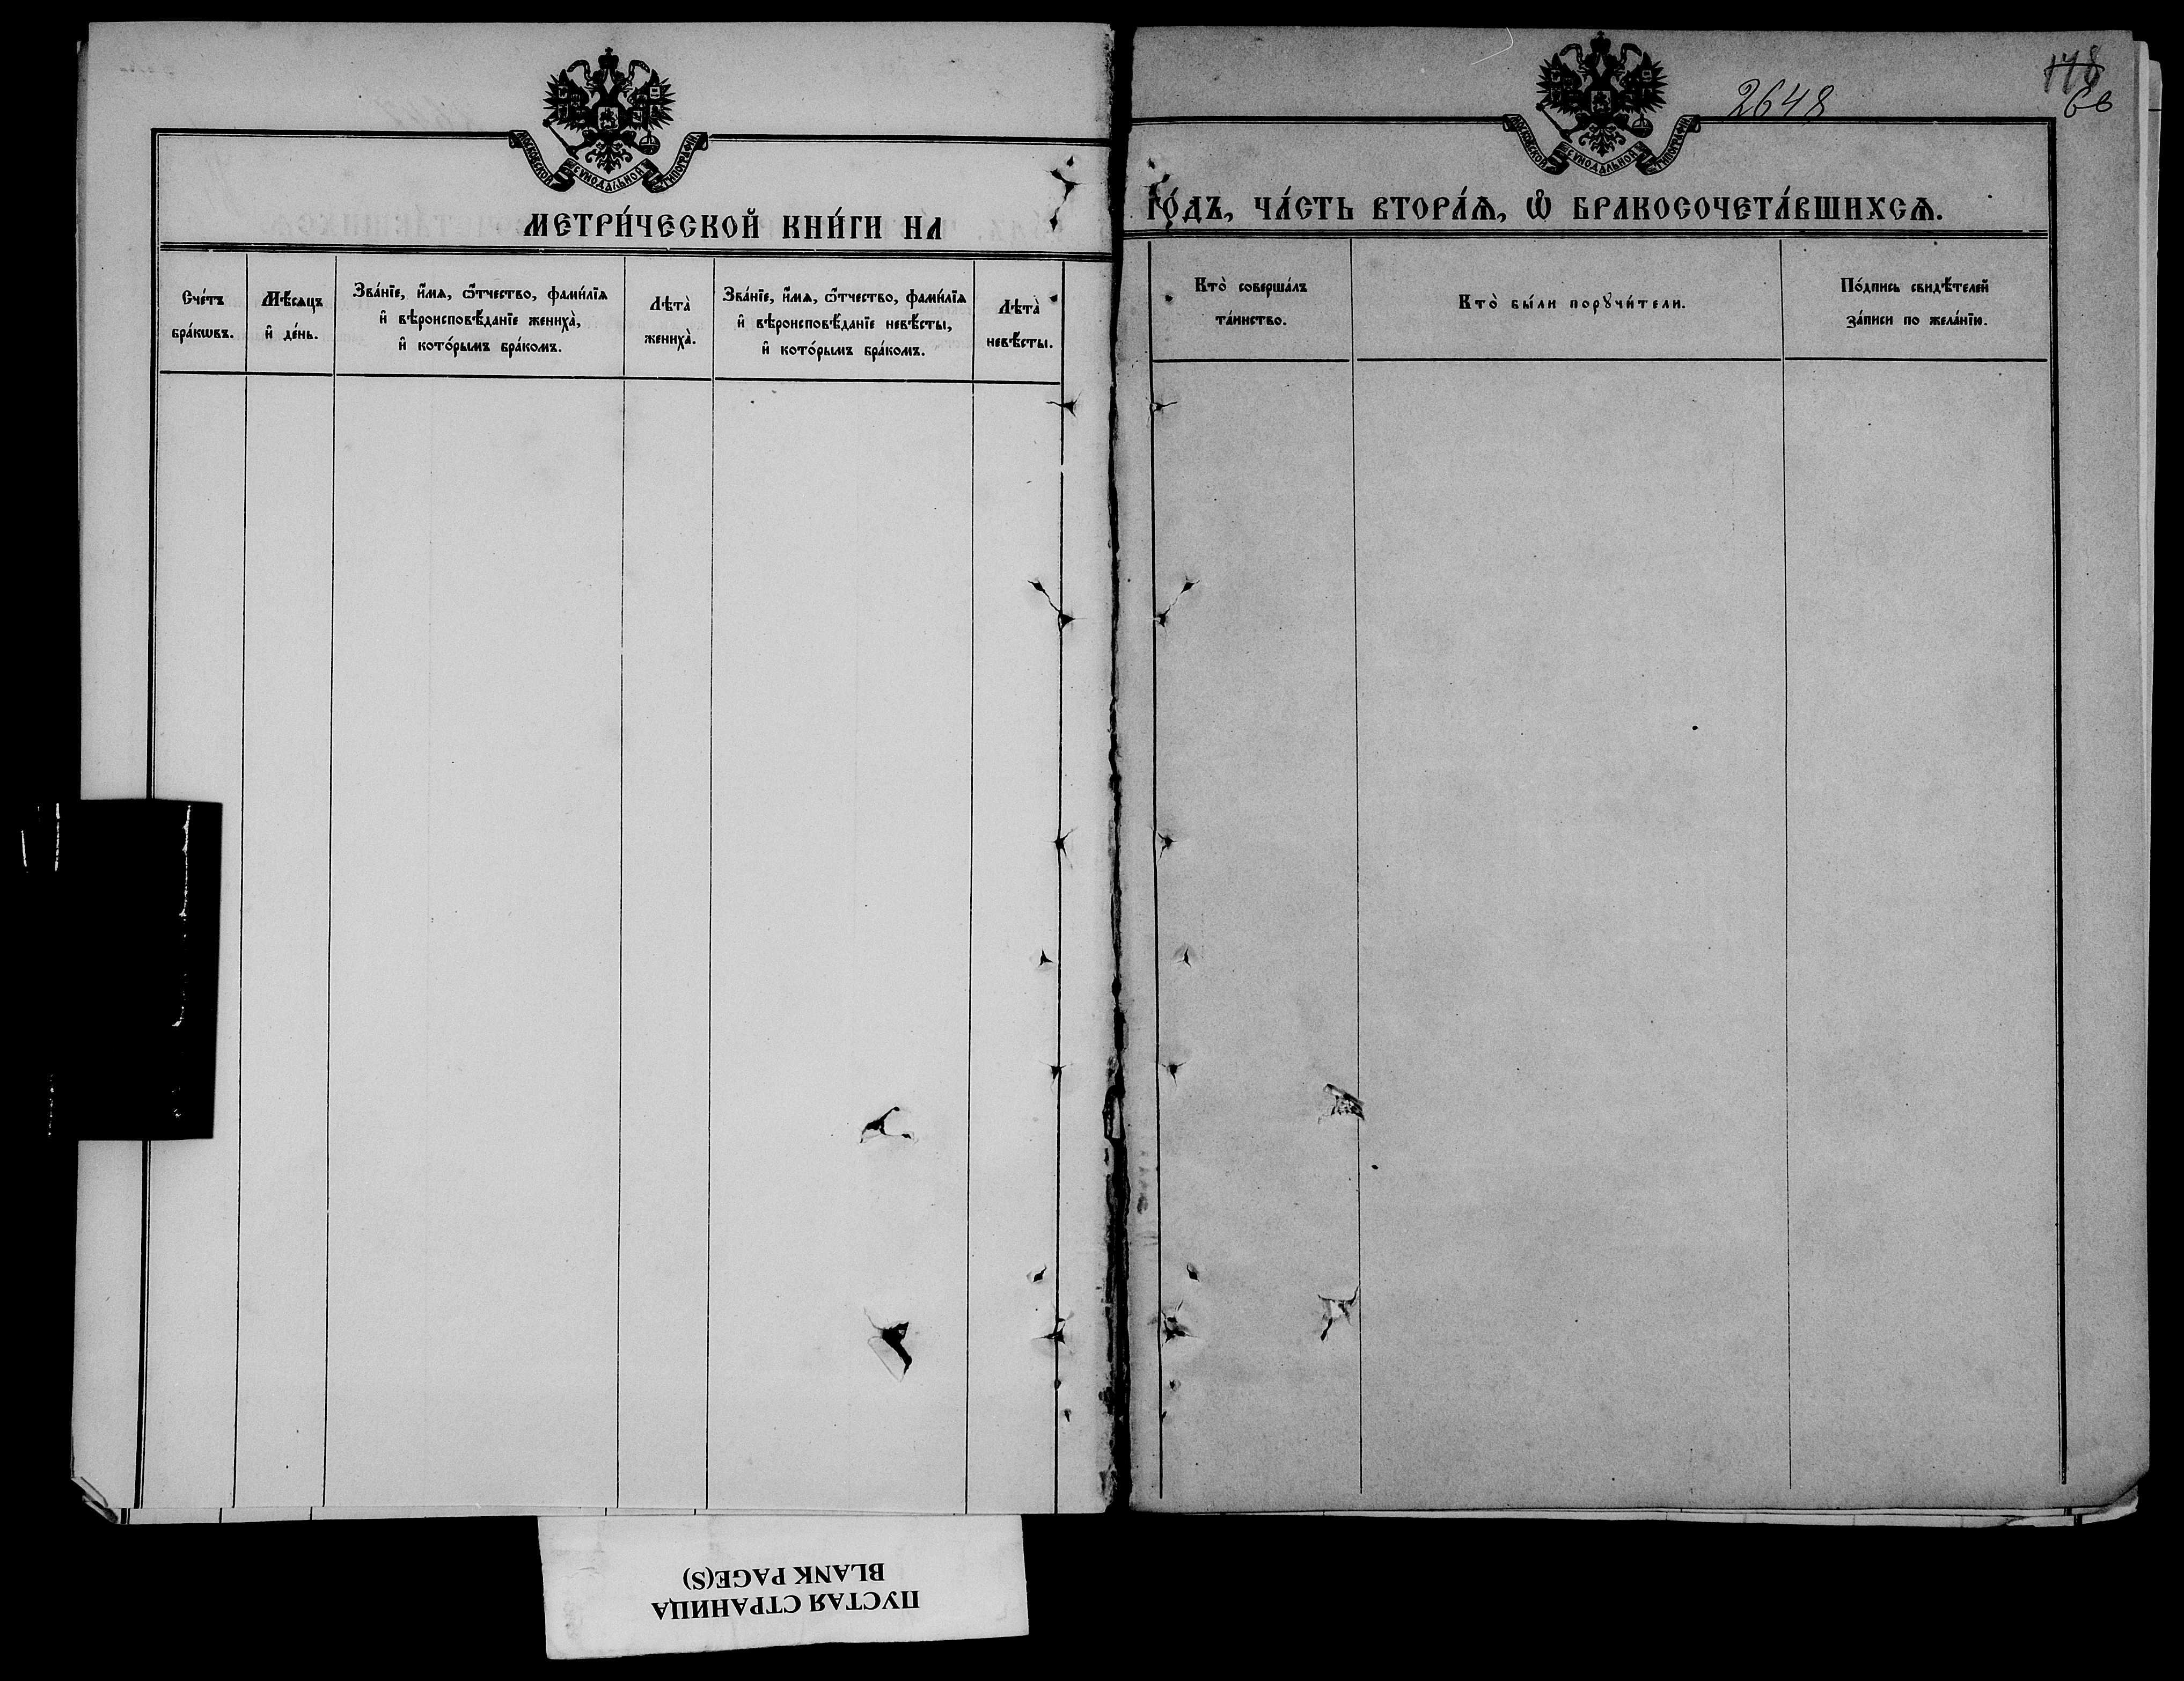 МОСКОВСКОЙ СѴНОДАЛЬНОЙ ТИПОГРАФІИ.
МЕТРИ́ЧЕСКОЙ КНИ́ГИ НА
Сче́тъ
бра́кѡвъ.
Мѣ́сяцъ
и҆ де́нь.
Зва́нїе, и҆́мя, ѻ҆́тчество, фами́лїя
и҆ вѣроисповѣ́данїе жениха̀,
и҆ кото́рымъ бра́комъ.
Лѣта̀
жениха̀.
Зва́нїе, и҆́мя, ѻ҆́тчество, фами́лїя
и҆ вѣроисповѣ́данїе невѣ́сты,
и҆ кото́рымъ бра́комъ.
Лѣта̀
невѣ́сты.
2648
МОСКОВСКОЙ СѴНОДАЛЬНОЙ ТИПОГРАФІИ.
ГО́ДЪ, ЧА́СТЬ ВТОРА́Ѧ, Ѡ҆ БРАКОСОЧЕТА́ВШИХСѦ.
Кто̀ соверша́лъ
та́инство.
Кто̀ бы́ли порꙋчи́тели.
По́дпись свидѣ́телей
за́писи по жела́нїю.
ПУСТАЯ СТРАНИЦА
BLANK PAGE(S)